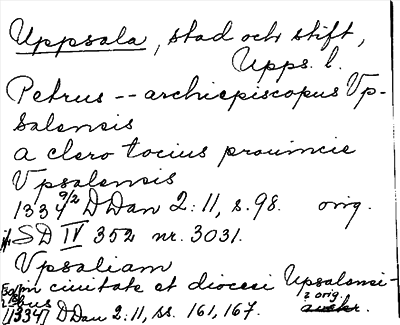 Uppsala, stad och stift,
Upps. l.
Petrus -- archiepiscopus Vp-
salensis
a clero tocius prouincie
Vpsalensis
1334 9/2 DDan 2:11, s. 98. orig.
jfr SD IV 352 nr. 3031.
Vpsaliam
in ciuitate et diocesi Upsalensi-
bus
[1334] DDan 2:11, ss. 161, 167. 2 orig.